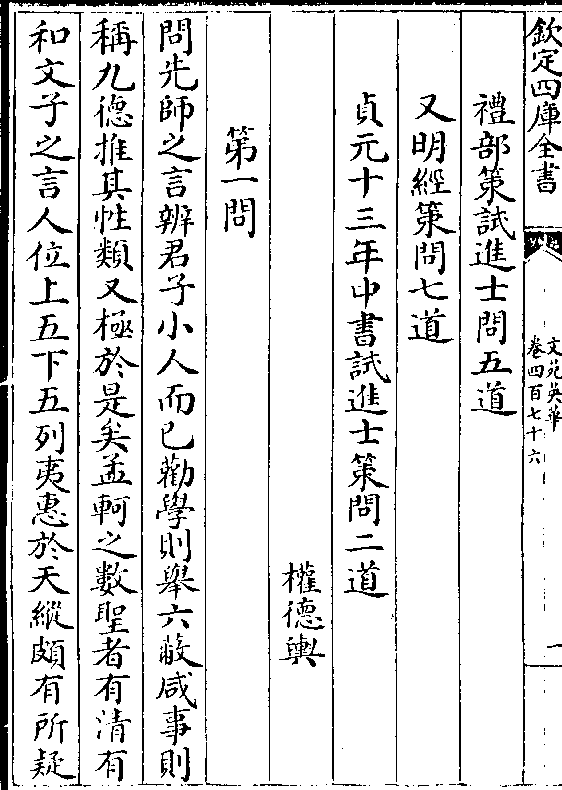 欽定四庫全書
文苑英華
卷四百七十六
一
禮部策試進士問五道
又明經策問七道
貞元十三年中書試進士策問二道
權德輿
第一問
問先師之言辨君子小人而已勸學則舉六蔽咸事則
稱九德推其性類又極於是矣孟軻之數聖者有清有
和文子之言人位上五下五列夷惠於天縱頗有所疑